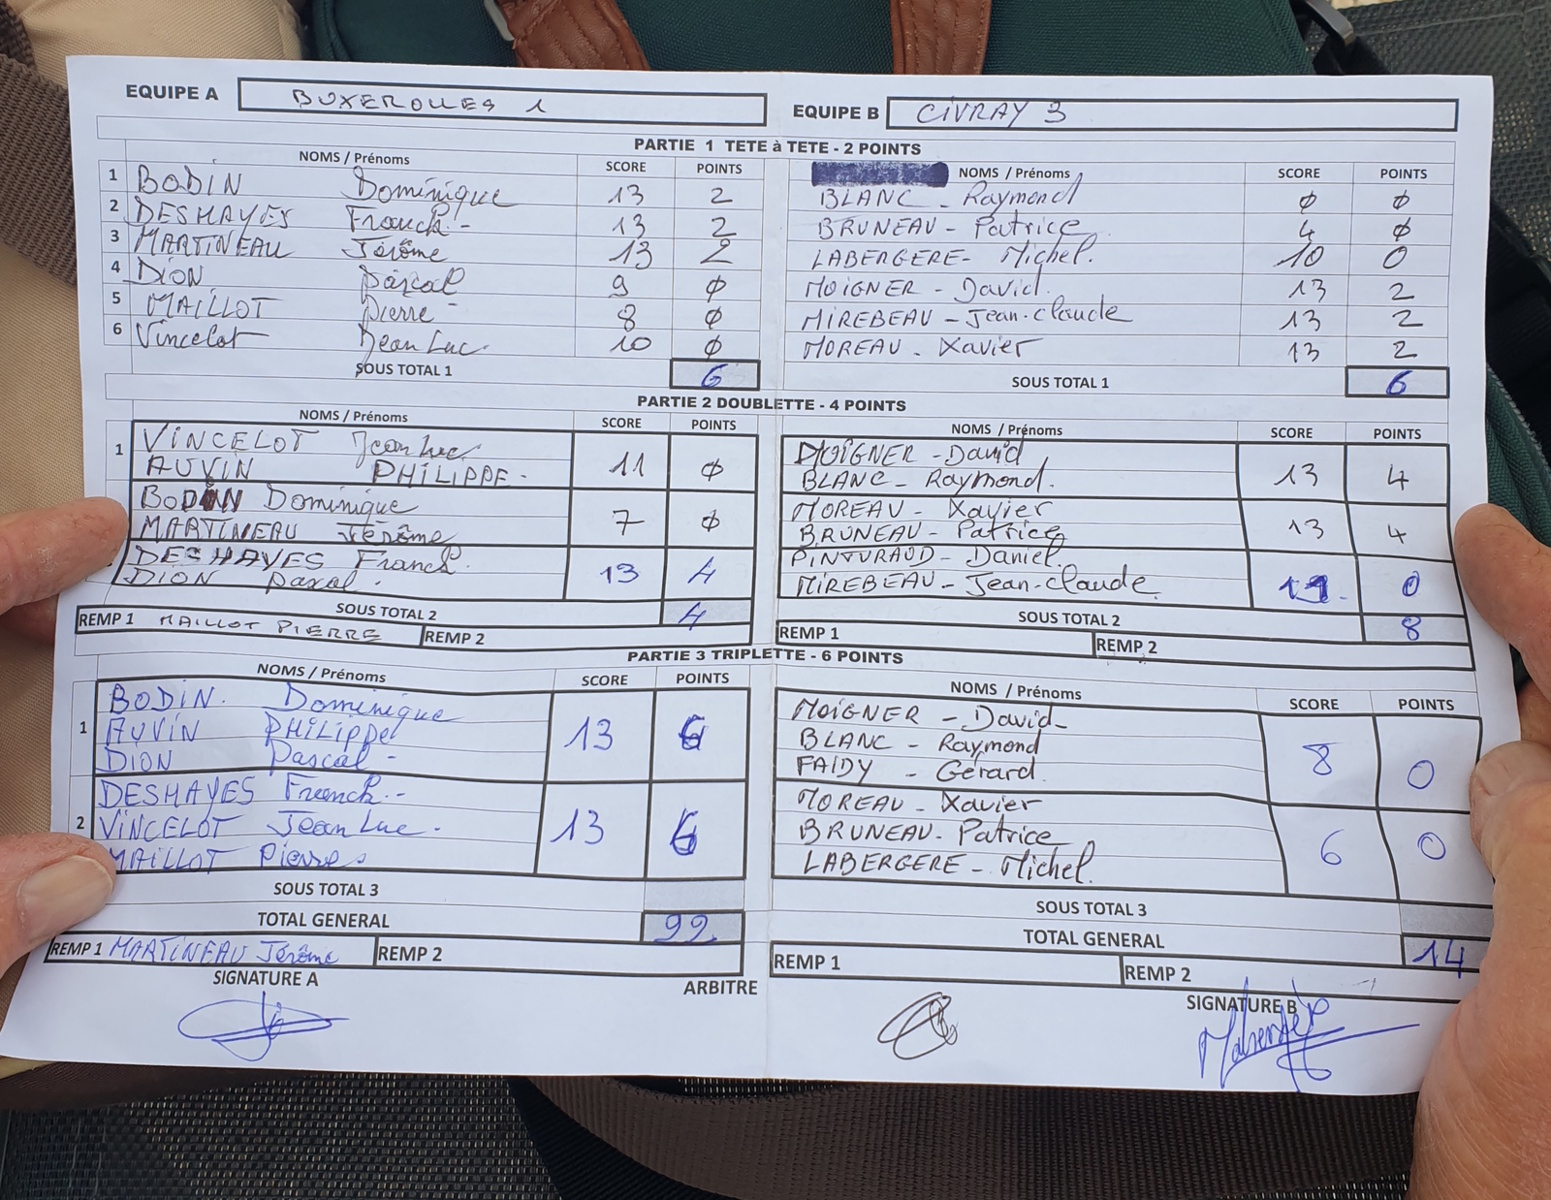 EQUIPE A BUXEROLLES 1 EQUIPE B CIVRAY 3
PARTIE 1 TETE à TETE - 2 POINTS
NOMS / Prénoms SCORE POINTS NOMS / Prénoms SCORE POINTS
1 BODIN Dominique 13 2 BLANC - Raymond ϕ ϕ
2 DESHAYES Franck - 13 2 BRUNEAU - Patrice 4 ϕ
3 MARTINEAU Jérôme 13 2 LABERGERE - Michel. 10 0
4 DION Pascal 9 ϕ MOIGNER - David. 13 2
5 MAILLOT Pierre - 8 ϕ MIREBEAU - Jean-claude 13 2
6 Vincelot Jean Luc. 10 ϕ MOREAU - Xavier 13 2
SOUS TOTAL 1 6 SOUS TOTAL 1 6
PARTIE 2 DOUBLETTE - 4 POINTS
NOMS / Prénoms SCORE POINTS NOMS / Prénoms SCORE POINTS
1 VINCELOT Jean Luc 11 ϕ MOIGNER - David 13 4
AUVIN PHILIPPE - BLANC - Raymond.
BODIN Dominique 7 ϕ MOREAU - Xavier 13 4
MARTINEAU Jérôme BRUNEAU - Patrice
DESHAYES Franck. 13 4 PINTURAUD - Daniel. 11 0
DION Pascal. MIREBEAU - Jean-claude
SOUS TOTAL 2 4 SOUS TOTAL 2 8
REMP 1 MAILLOT PIERRE REMP 2 REMP 1 REMP 2
PARTIE 3 TRIPLETTE - 6 POINTS
NOMS / Prénoms SCORE POINTS NOMS / Prénoms SCORE POINTS
1 BODIN. Dominique 13 6 MOIGNER - David - 8 0
AUVIN PHILIPPE BLANC - Raymond
DION Pascal - FAIDY - Gérard.
2 DESHAYES Franck - 13 6 MOREAU - Xavier 6 0
VINCELOT Jean Luc - BRUNEAU - Patrice
MAILLOT Pierre LABERGERE - Michel.
SOUS TOTAL 3 SOUS TOTAL 3
TOTAL GENERAL 22 TOTAL GENERAL 14
REMP 1 MARTINEAU Jérôme REMP 2 REMP 1 REMP 2
SIGNATURE A ARBITRE SIGNATURE B